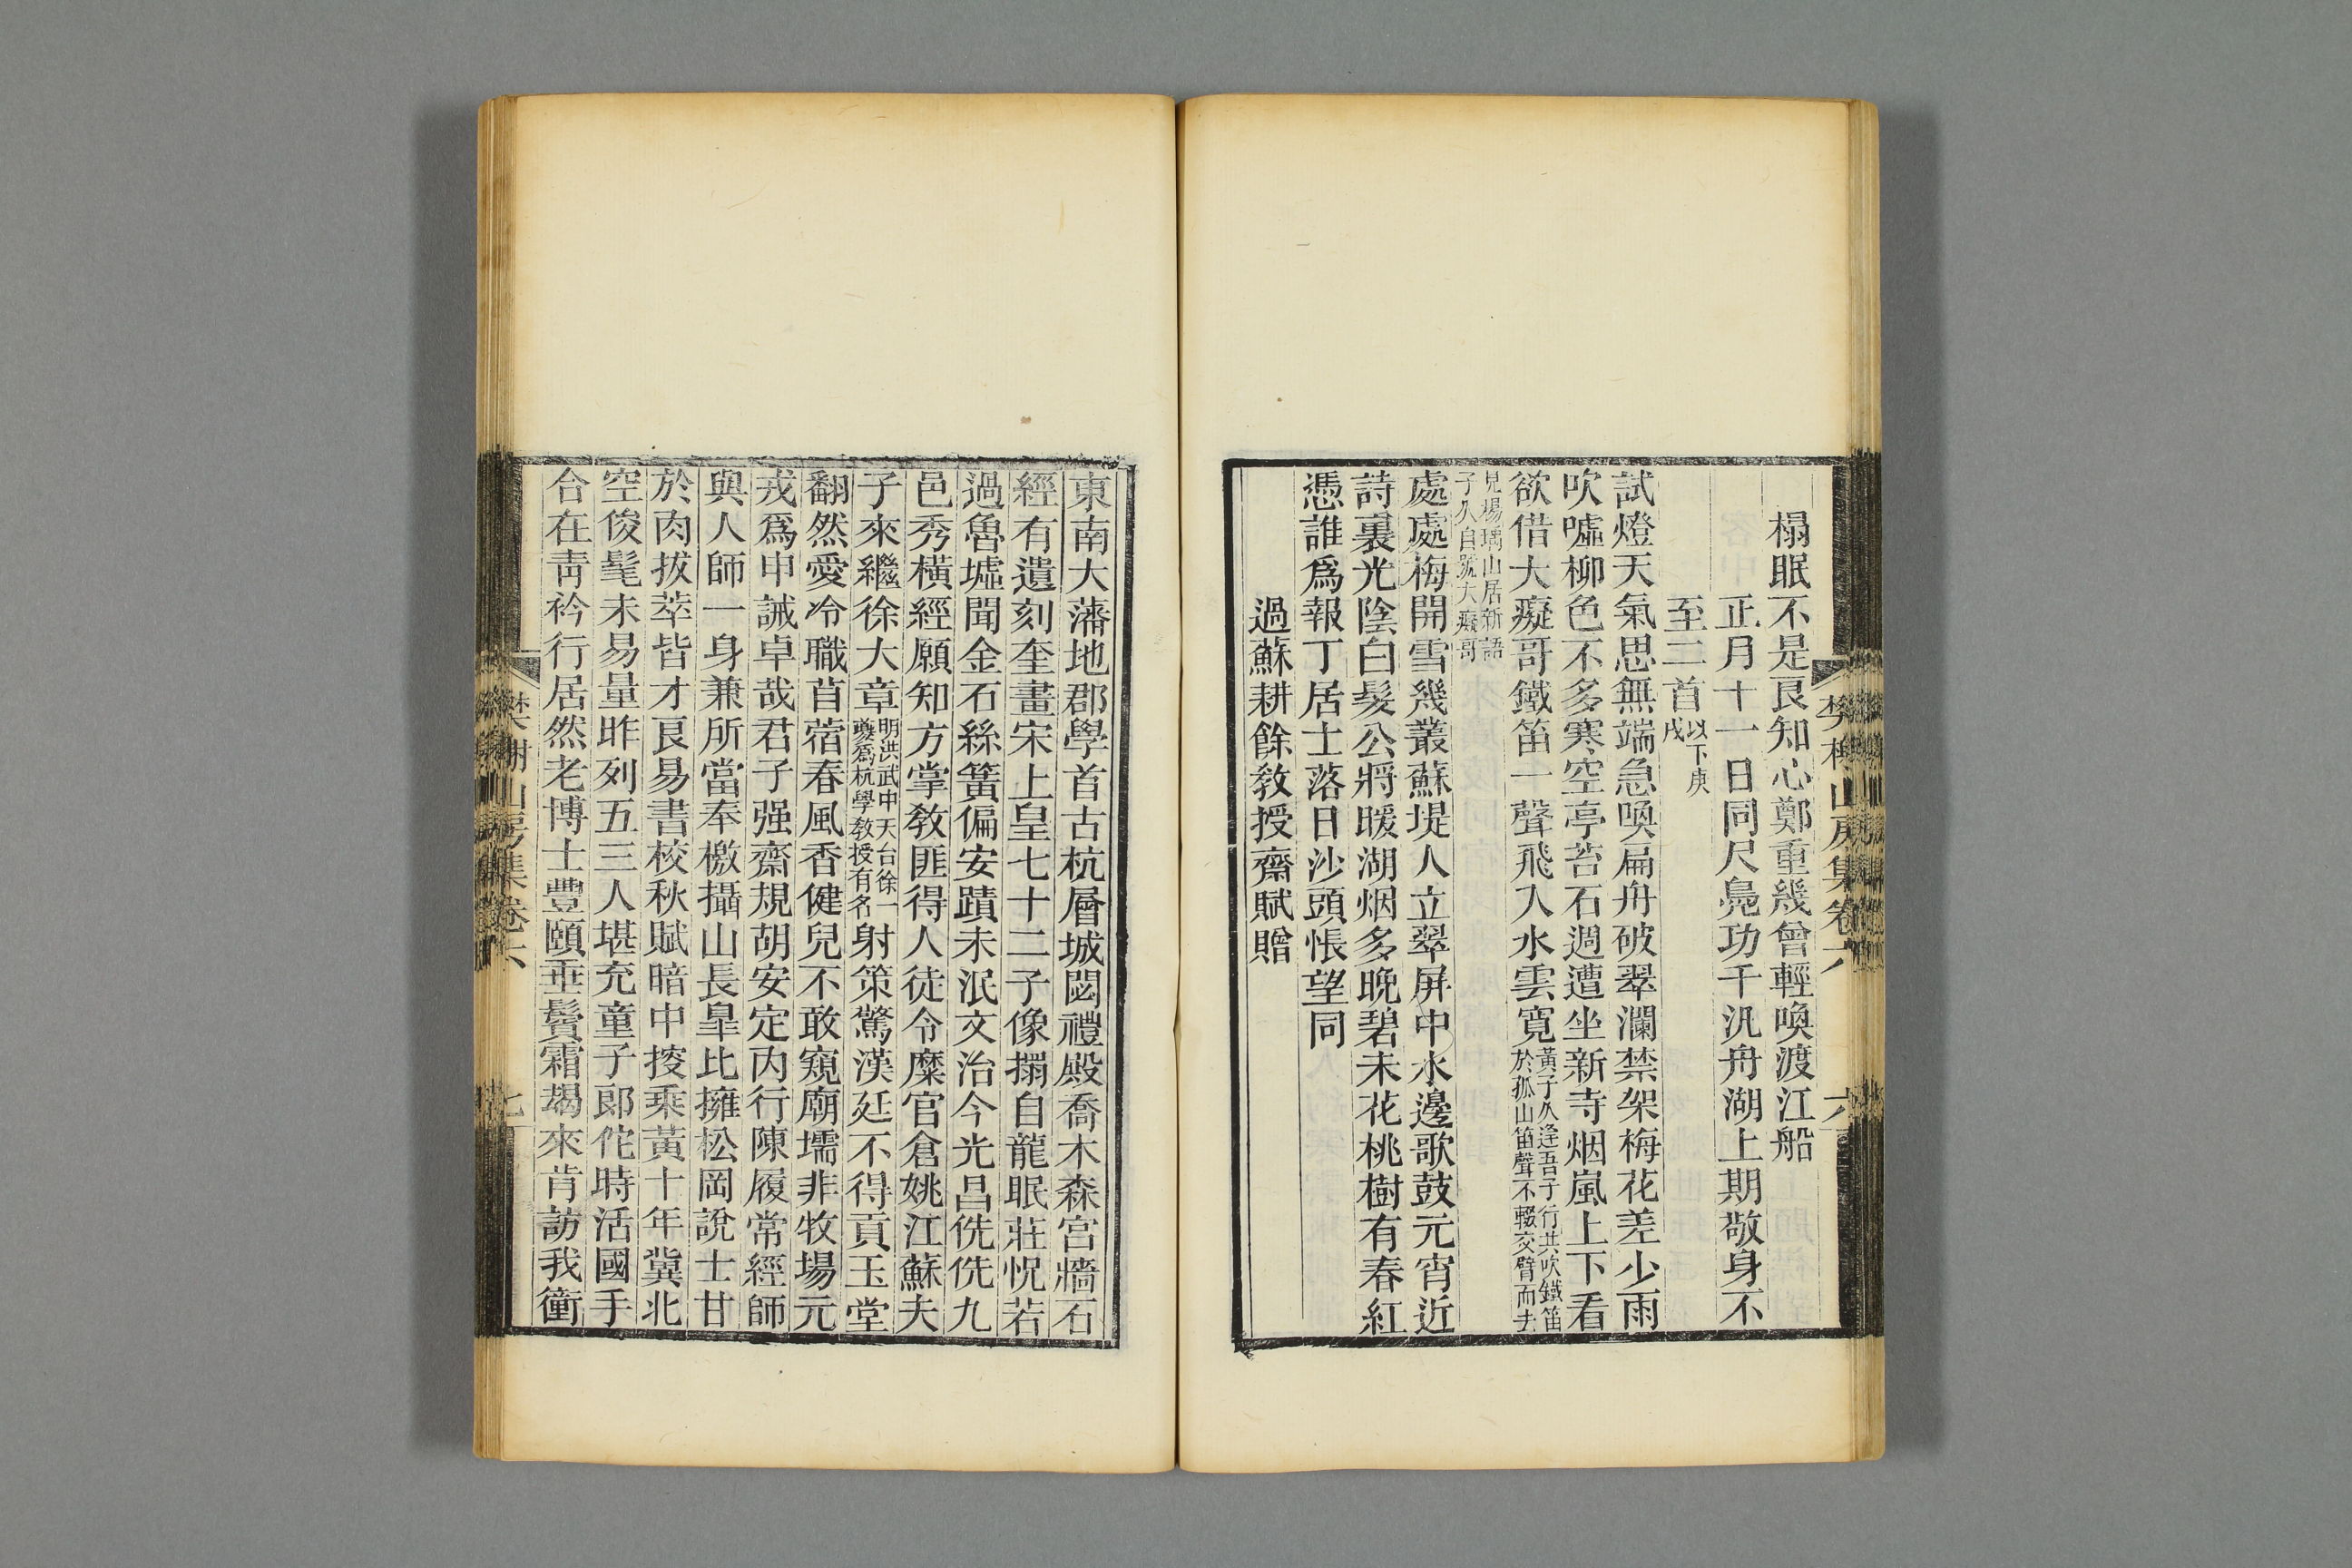 樊榭山房集卷六
六
榻眠不是良知心鄭重幾曾輕喚渡江船
正月十一日同尺鳧功千汎舟湖上期敬身不
至二首以下庚戌
試燈天氣思無端急喚扁舟破翠瀾禁架梅花差少雨
吹噓柳色不多寒空亭苔石週遭坐新寺烟嵐上下看
欲借大癡哥鐵笛一聲飛入水雲寬黃子久逢吾子行共吹鐵笛於孤山笛聲不輟交臂而去
見楊瑀山居新語子久自號大癡哥
處處梅開雪幾叢蘇堤人立翠屏中水邊歌鼓元宵近
詩裏光陰白髮公將暖湖烟多晚碧未花桃樹有春紅
憑誰爲報丁居士落日沙頭悵望同
過蘇耕餘教授齋賦贈
東南大藩地郡學首古杭層城閟禮殿喬木森宮牆石
經有遺刻奎畫宋上皇七十二子像搨自龍眠莊怳若
過魯墟聞金石絲簧偏安蹟未泯文治今光昌侁侁九
邑秀橫經願知方掌敎匪得人徒令糜官倉姚江蘇夫
子來繼徐大章明洪武中天台徐一夔爲杭學敎授有名射策驚漢廷不得貢玉堂
翻然愛冷職苜蓿春風香健兒不敢窺廟壖非牧場元
戎爲申誡卓哉君子强齋規胡安定內行陳履常經師
與人師一身兼所當奉檄攝山長臯比擁松岡說士甘
於肉拔萃皆才良易書校秋賦暗中㨄乘黃十年冀北
空俊髦未易量昨列五三人堪充童子郎佗時活國手
合在靑衿行居然老博士豐頤垂鬢霜朅來肯訪我衝
樊榭山房集卷六
七